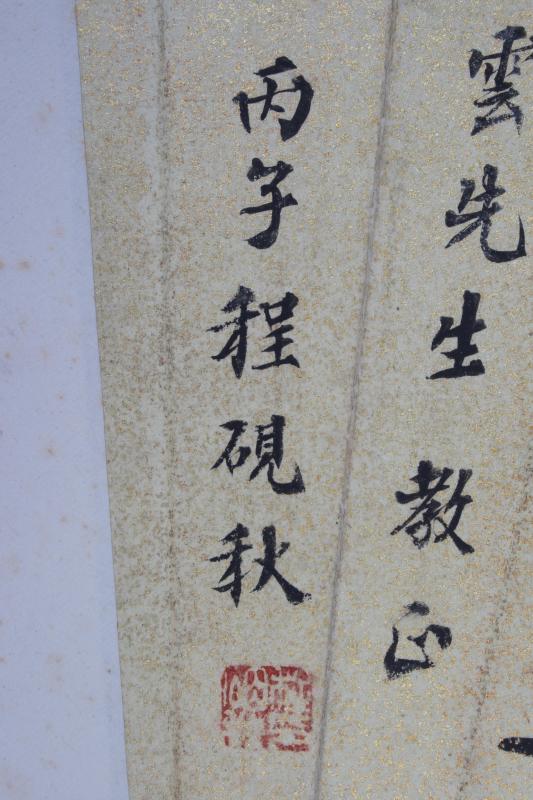 雲先生教正
丙子程硯秋